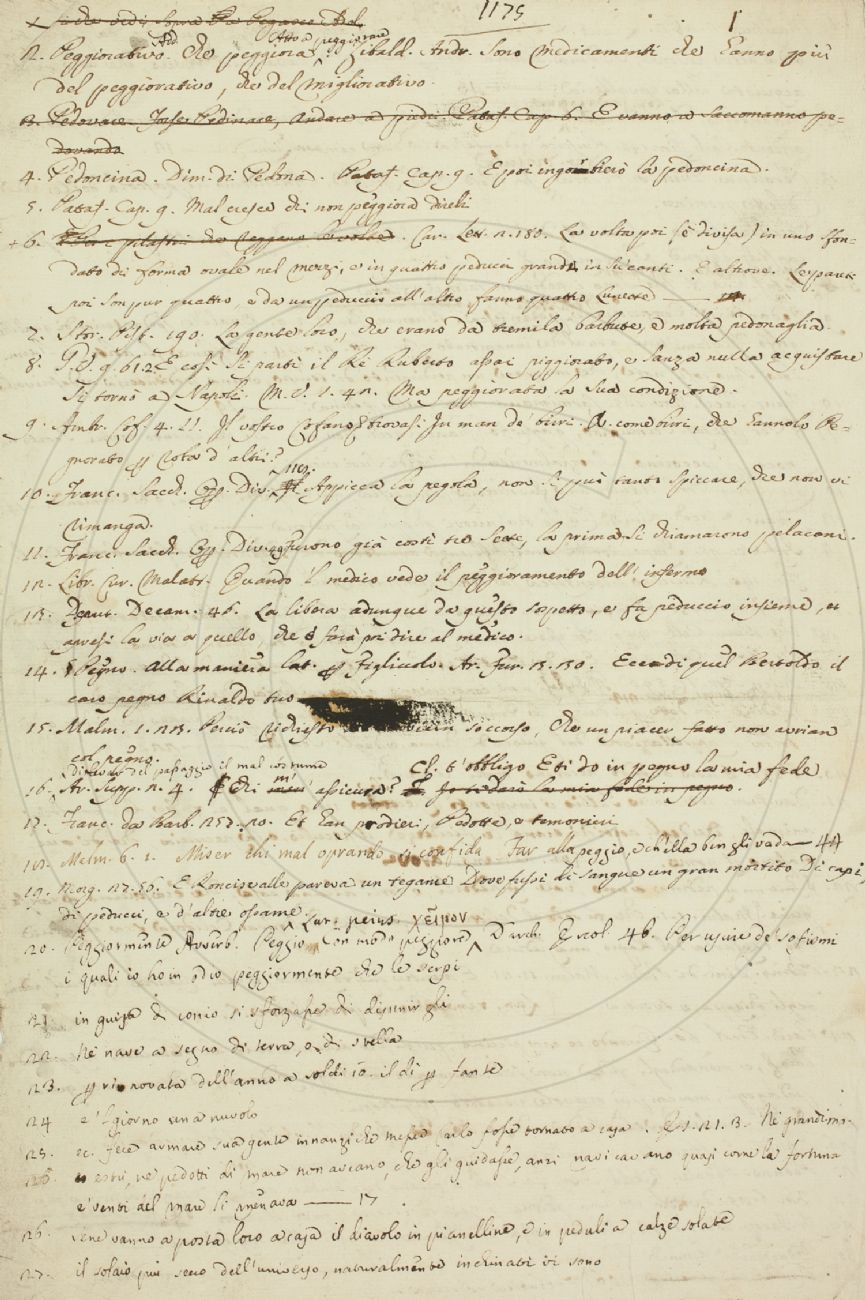 1175
1
2. Peggiorativo. Add. Che peggiora. Atto a peggiorare. Zibald. Andr. Sono medicamenti che hanno più
del peggiorativo, che del migliorativo.
3. Pedovare. Forse Pedinare, andare a piedi. Pataf. Cap. 6. E vanno a saccomanno pe-
dovando
4. Pedoncina. Dim. di Pedona. Pataf. Cap. 9. E poi la pedoncina.
5. Pataf. Cap. 9. Mal cresce chi non peggiora direbi
+ 6. Car. Lett. n. 180. La volta poi (è divisa) in uno sfon-
dato di forma ovale nel mezzi, e in quattro peducci grandi, in su i canti. E altrove. Le parti
poi son pur quattro, e da un peduccio all'altro fanno quattro lunette
7. Stor. Pist. 190. La gente loro, che erano da tremila barbute, e molta pedonaglia.
8. G.V. 9. 61. 2 E così si partì il Re Ruberto assai piggiorato, e sanza nulla acquistare
si tornò a Napoli. M.V. 1. 42. Ma peggiorata la sua condizione.
9. Ambr. Cof. 4. 11. Il vostro Cofano trovasi In man de' birri. R. come birri, che hannolo Pe-
gnorato p cota d' altri?
10. Franc. Sacch. Op. Div. 119. Appicca la pegola, non si può tanto spiccare, che non vi
rimanga.
11. Franc. Sacch. Op. Div. Furono già costì tre sette, la prima si chiamarono pelacani.
12. Libr. Cur. Malatt. Quando 'l medico vede il peggioramento dell' infermo
13. Decam. 46. La libera adunque da questo sospetto, e fa peduccio insieme, et
apresi la via a quello, che farà pridire al medico.
14. Pegno. Alla maniera lat. p Figliuolo. Ar. Fur. 13. 130. Ecco di quel Bertoldo il
caro pegno Rinaldo tuo
15. Malm. 1. 23. Perciò richiesto soccorso, Che un piacer fatto non avrian
col pegno.
16. Ar. Supp. 2. 4. Chi m' assicura? Cl. T'obbligo E ti do in pegno la mia fede
17. Franc. da Barb. 257. 20. Et han prodieri, Pedotte, e temonieri
18. Malm. 6. 1. Miser chi mal oprando si confida Far alla peggio, e ch'ella ben gli vada
19. Morg. 27. 56. E Roncisvalle pareva un tegame Dove fussi di sangue un gran mortito Di capi,
di peducci, e d'altro ossame.
20. Peggiormente Avverb. Peggio, Con modo peggiore. Lat. peius. χεῖρον Davch. Ercol. 46. Per usure de' sofismi
i quali io ho in odio peggiormente che le serpi
21. in guisa di conio si sforzasse di disunirgli
22. Nè nave a segno di terra, o di stella
23. p rinnovata dell'anno a soldi 10. il dì p fante
24 e 'l giorno una nuvolo
25. ec. fece armare sua gente innanzi che messer Carlo fosse tornato a casa. 1. 21. 3. Nè grandi ma-
26. estri, nè pedotti di mare non aveano, che gli guidasse, anzi navicavano quasi come la fortuna
e' venti del mare li menava 17
26. vene vanno a posta loro a casa il diavolo in pianelline, e in peduli a calze solate
27. il solaio più secco dell'universo, naturalmente inchinati vi sono